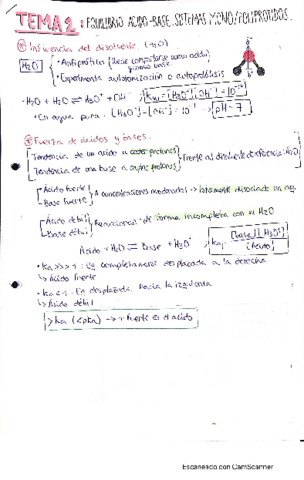 TEMA 2: EQUILIBRIO ÁCIDO-BASE. SISTEMAS MONO/POLIPRÓTIDOS.
Influencia del disolvente (H₂O)
H₂O
• Antiprótica (puede comportarse como ácido y
como base
• Experimenta autoionización o autoprotólisis
- H₂O + H₂O ⇌ H₃O⁺ + OH⁻ Kw = [H₃O⁺][OH⁻] = 10⁻¹⁴
• En agua pura: [H₃O⁺] = [OH⁻] = 10⁻⁷ → pH = 7
Fuerza de ácidos y bases.
Tendencia de un ácido a ceder protones
Tendencia de una base a captar protones
Frente al disolvente de referencia: H₂O
Ácido fuerte
Base fuerte
A concentraciones moderadas → totalmente disociado en aq.
Ácido débil
Base débil
Reaccionan de forma incompleta con el H₂O
Ácido + H₂O ⇌ Base + H₃O⁺ Ka = [Base][H₃O⁺] / [Ácido]
• Ka >>> 1: Eq. completamente desplazada a la derecha
↳ Ácido fuerte
• Ka < 1: Eq. desplazada hacia la izquierda
↳ Ácido débil
> Ka (< pKa) → + fuerte es el ácido
Escaneado con CamScanner